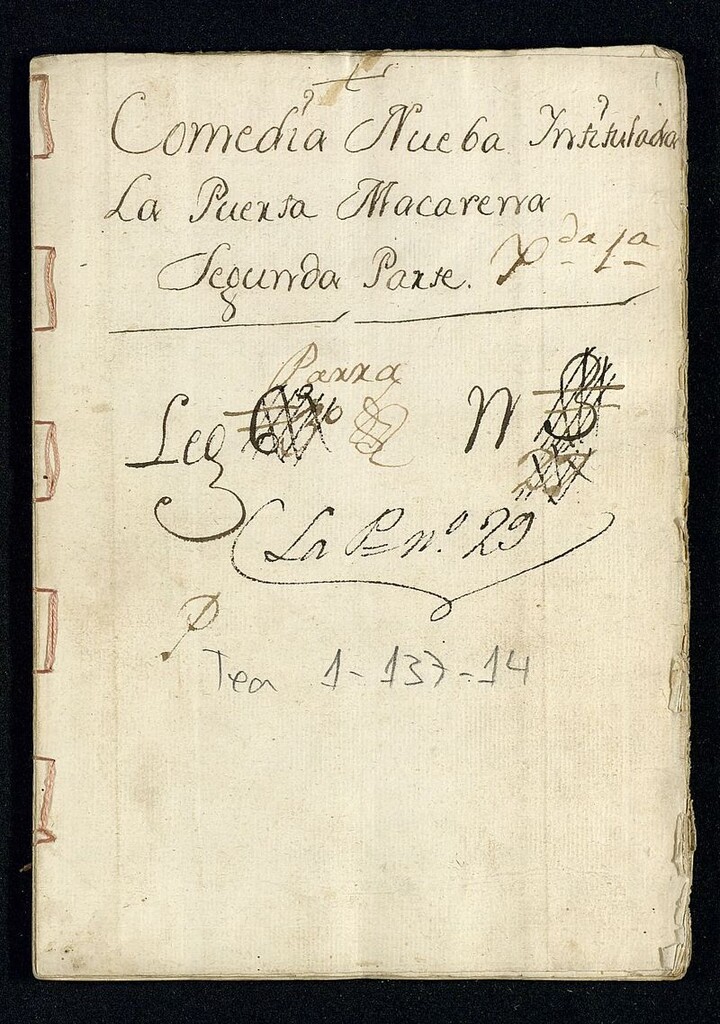 Comedia Nueba Intitulada
La Puerta Macarena
Segunda Parte. Jor.da 1a
Parra
Leg
N
La P. n.º 29
Tea 1-137-14